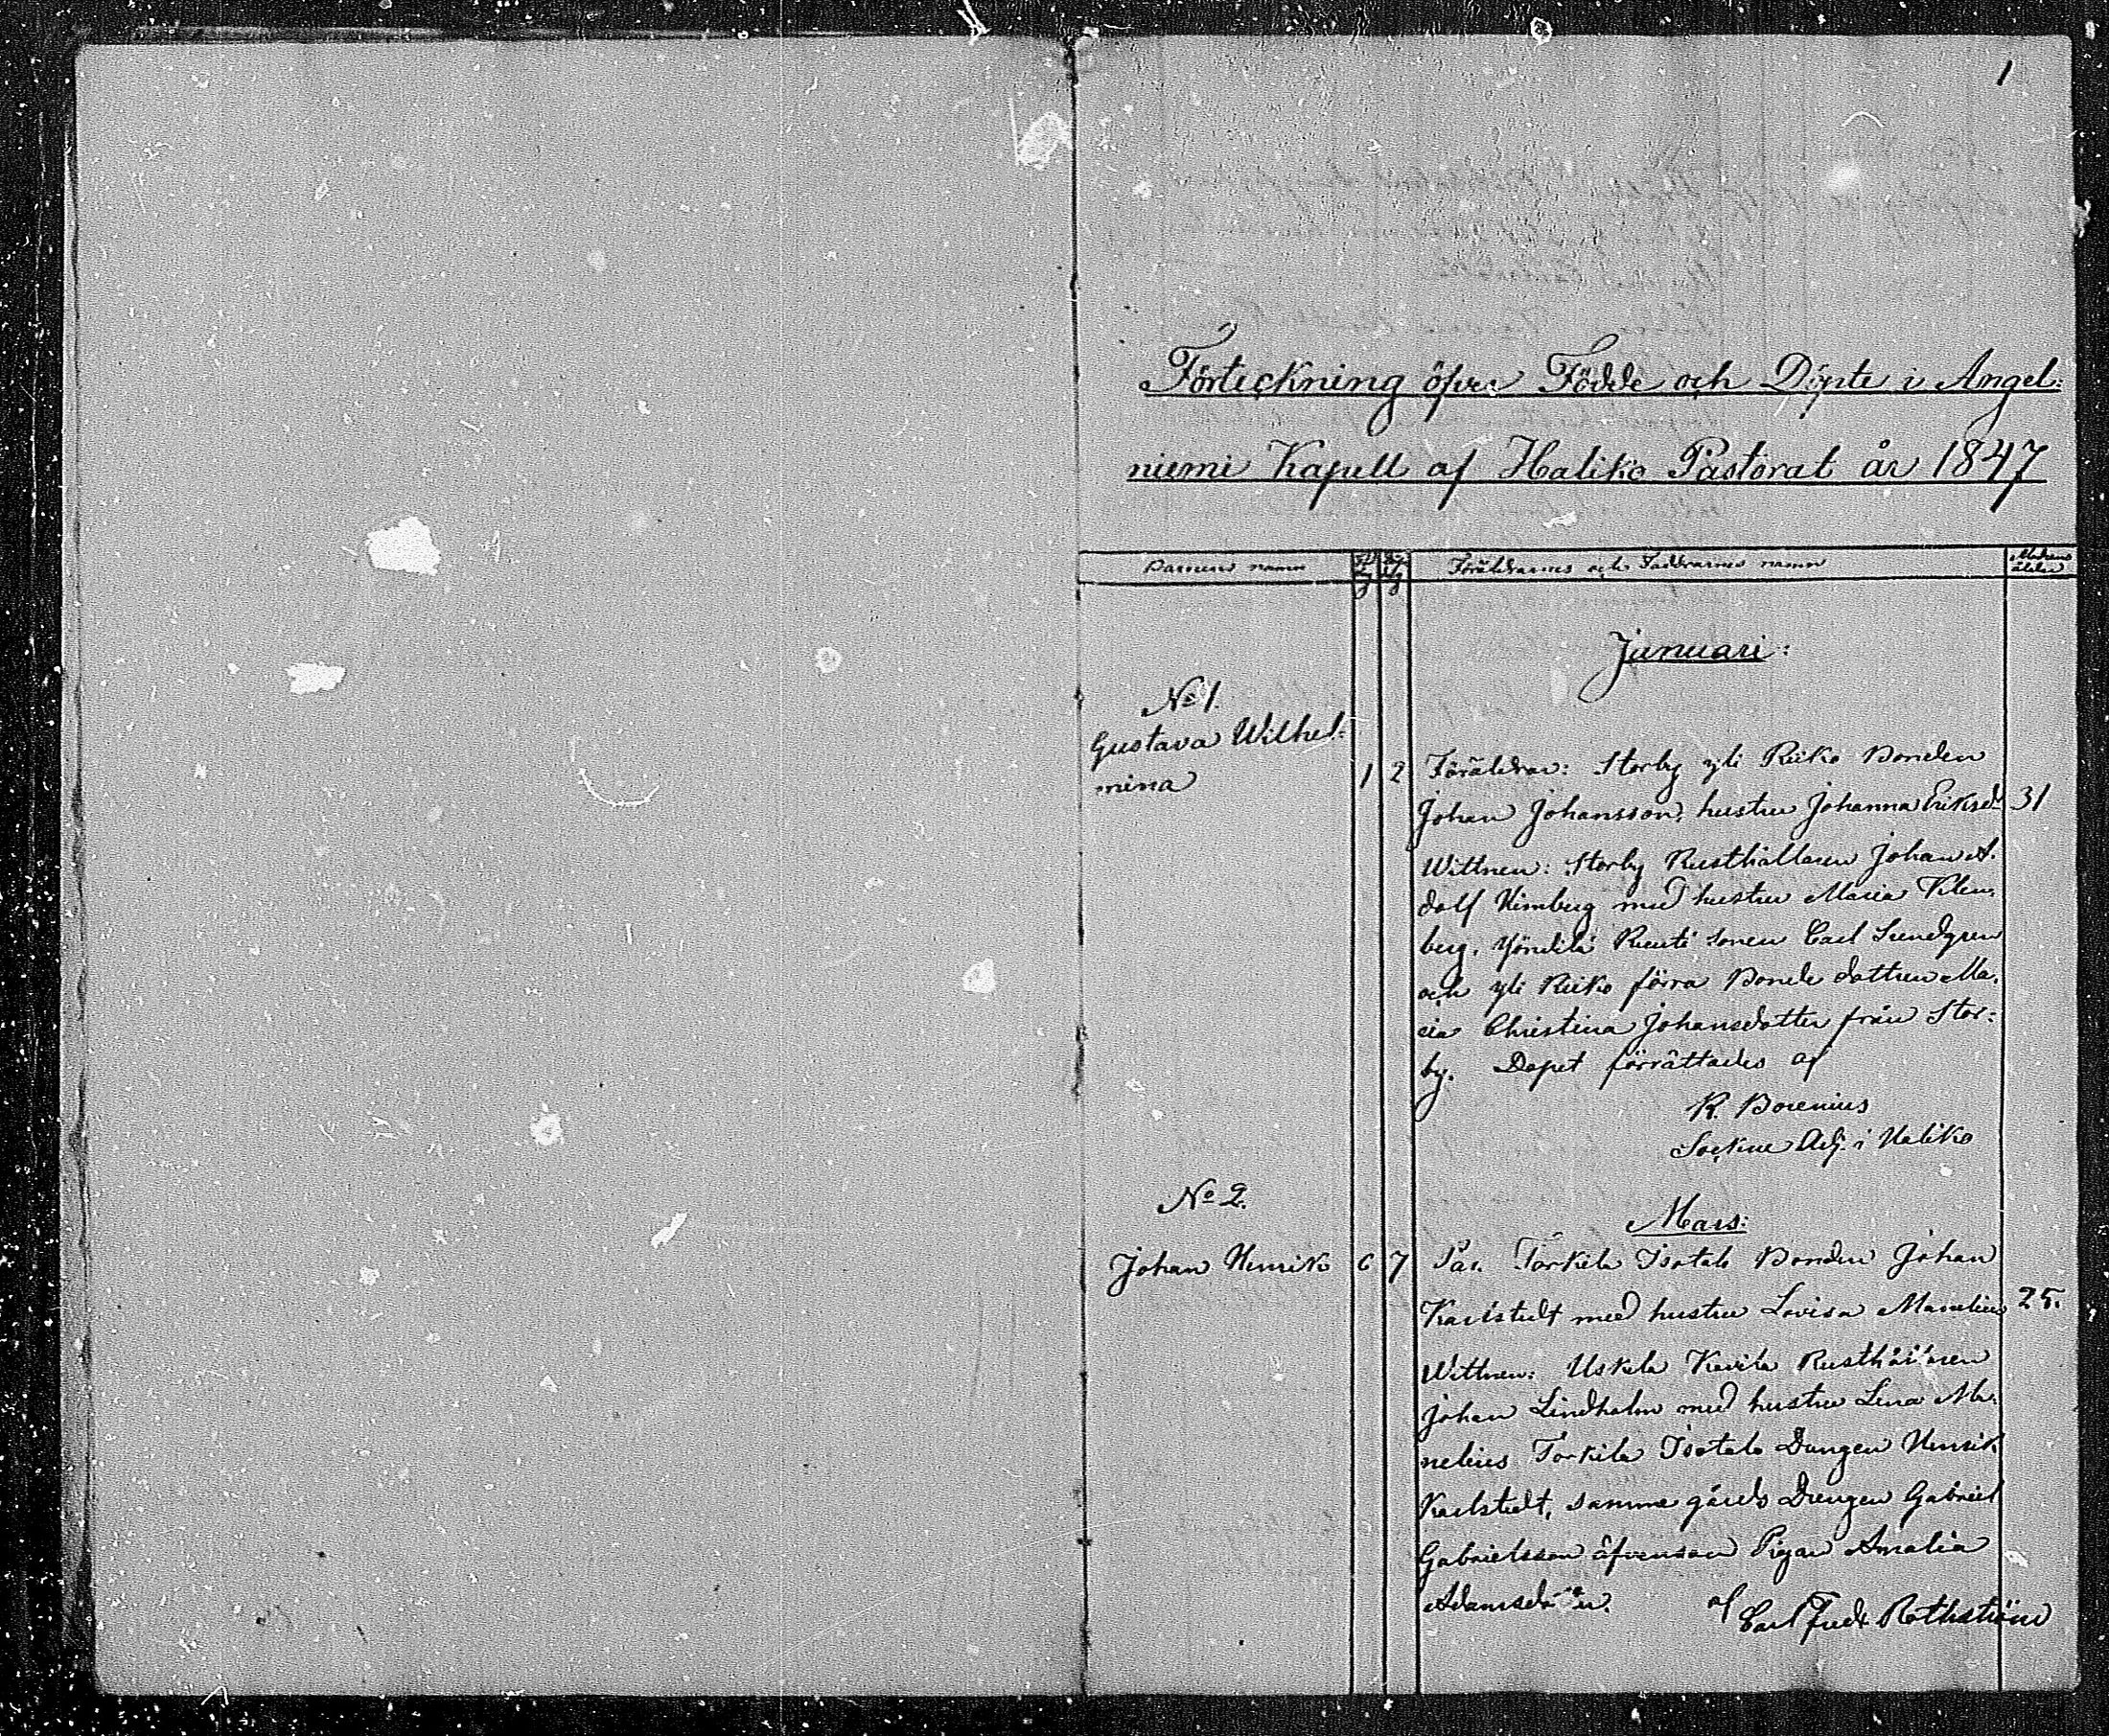 1
Förteckning öfver Födde och Döpte i Angel:
niemi Kapell af Haliko Pastorat år 1847
Barnens namn
Föräldrarnes och Faddrarnes namn
Modrens
ålder
Januari:
No 1.
Gustava Wilhel:
mina
1 2
Föräldrar: Storby yli Riiko Bonden
Johan Johansson, hustru Johanna Eriksdr
31
Wittnen: Storby Rusthållaren Johan A.
dolf Himberg med hustru Maria Flen.
berg, Yöntilä sonen Carl Lundgren
och yli Riiko förra Bonde dottren Ma.
ria Christina Johansdotter från Stor:
by. Dopet förrättades af
R. Borenius
Sockne Adj. i Haliko
No 2.
Mars:
Johan Henrik
6 7
Par. Torkila Isotalo Bonden Johan
Karlstedt med hustru Lovisa Manelius
25.
Wittnen: Uskela Kavila Rusthållaren
Johan Lindholm med hustru Lena Ma.
nelius Torkila Isotalo Drengen Henrik
Karlstedt, samma gårds Drengen Gabriel
Gabrielsson äfvensom Pigan Amalia
Adamsdotter.
af Carl Fredr Rothström